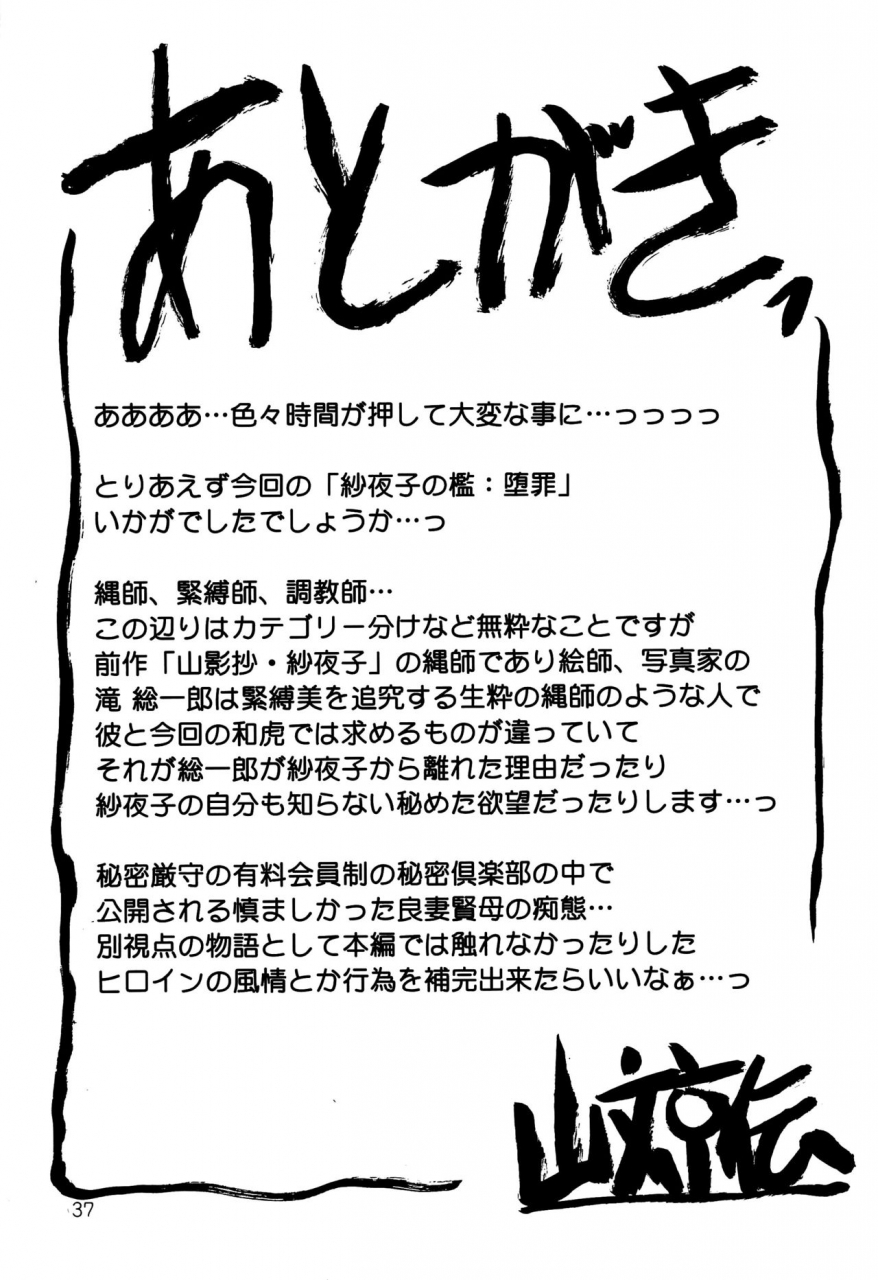 あとがきっ
ああああ…色々時間が押して大変な事に…っっっっ
とりあえず今回の「紗夜子の檻：堕罪」
いかがでしたでしょうか…っ
縄師、緊縛師、調教師…
この辺りはカテゴリー分けなど無粋なことですが
前作「山影抄・紗夜子」の縄師であり絵師、写真家の
滝 総一郎は緊縛美を追究する生粋の縄師のような人で
彼と今回の和虎では求めるものが違っていて
それが総一郎が紗夜子から離れた理由だったり
紗夜子の自分も知らない秘めた欲望だったりします…っ
秘密厳守の有料会員制の秘密倶楽部の中で
公開される慎ましかった良妻賢母の痴態…
別視点の物語として本編では触れなかったりした
ヒロインの風情とか行為を補完出来たらいいなぁ…っ
山文京伝
37